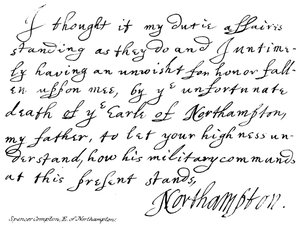 I thought it my dutie affairs
standing as they do and I untime-
ly having an unwisht for honor fall-
en uppon mee, by yᵉ unfortunate
death of yᵉ Earle of Northampton,
my father, to let your highness un-
derstand, how his military commands
at this present stands,
Northampton.
Spencer Compton, E. of Northampton: